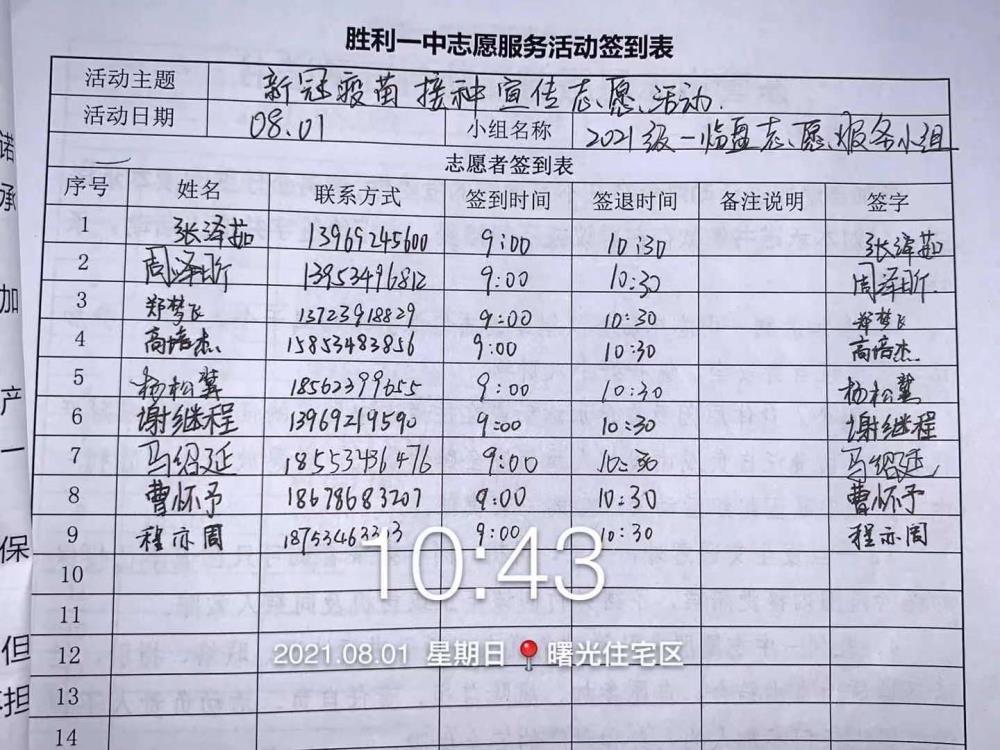 胜利一中志愿服务活动签到表
活动主题 新冠疫苗接种宣传志愿活动.
活动日期 08.01 小组名称 2021级一临盘志愿服务小组
志愿者签到表
序号 姓名 联系方式 签到时间 签退时间 备注说明 签字
1 张泽茹 13969245600 9:00 10:30 张泽茹
2 周泽昕 13953496812 9:00 10:30 周泽昕
3 郑梦飞 13723918829 9:00 10:30 郑梦飞
4 高培杰 15853483856 9:00 10:30 高培杰
5 杨松冀 18562399655 9:00 10:30 杨松冀
6 谢继程 13969219590 9:00 10:30 谢继程
7 马绍延 18553436476 9:00 10:30 马绍延
8 曹怀予 18678683207 9:00 10:30 曹怀予
9 程亦周 18753463313 9:00 10:30 程亦周
10
11
12
13
14
10:43
2021.08.01 星期日 曙光住宅区
诺
承
加
产
一
保
但
担